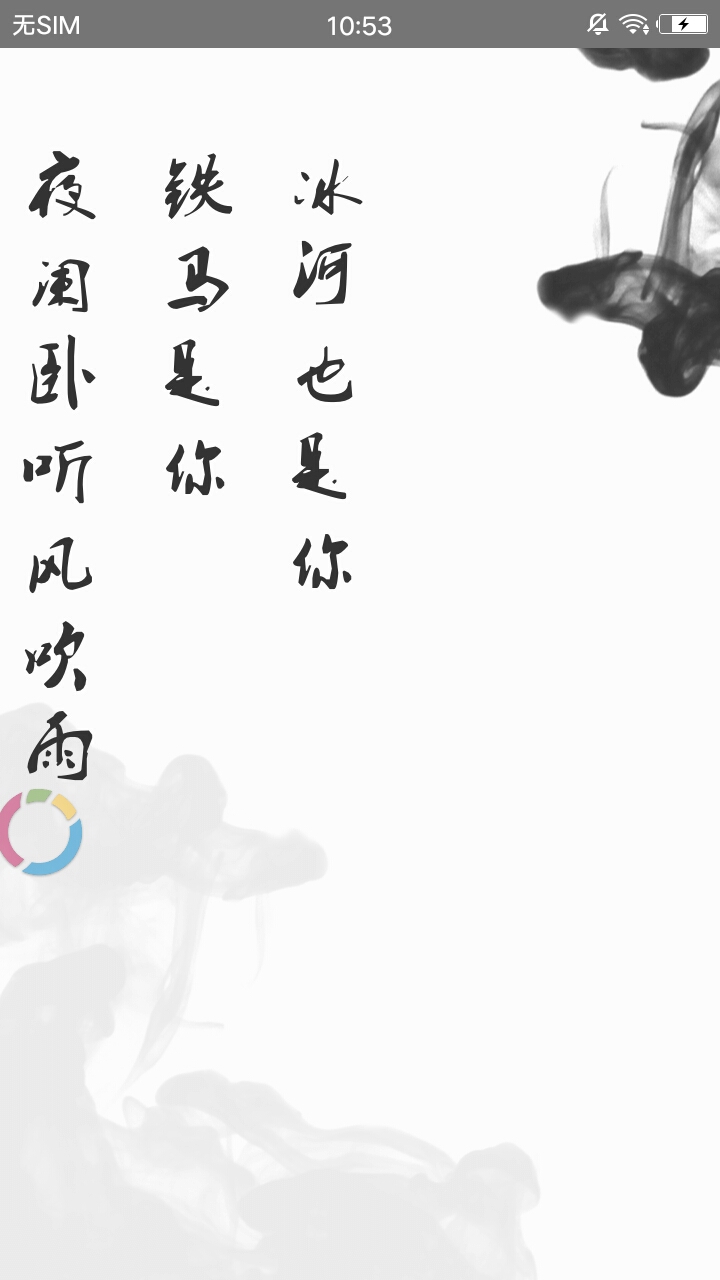 无SIM 10:53
夜阑卧听风吹雨
铁马是你
冰河也是你